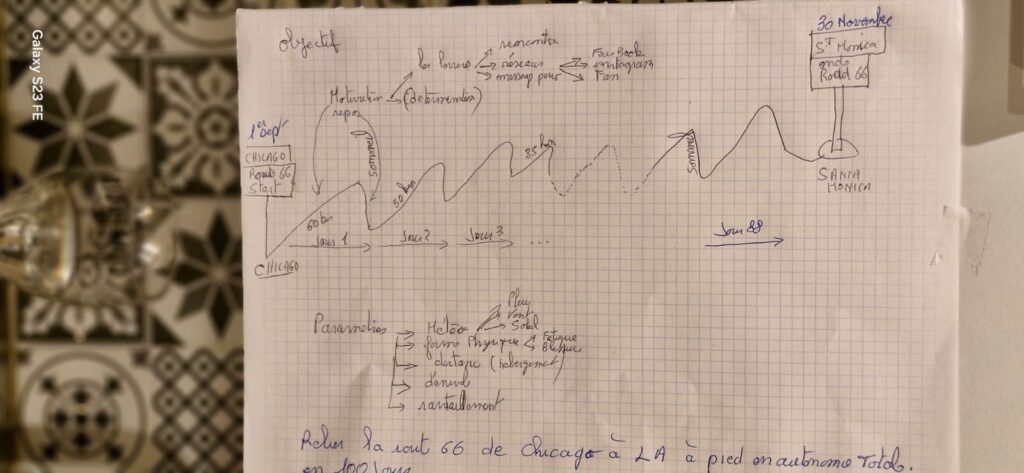 Galaxy S23 FE
Objectif
30 Novembre
St Monica
end
Road 66
rencontre
réseaux
FaceBook
instagram
Fan
Motivation
(determination)
repos
1er Sept
CHICAGO
Route 66
Start
60 km
50 km
35 km
SANTA
MONICA
Jour 1
Jour 2
Jour 3
...
Jour 88
CHICAGO
Parametres
Météo
Pluie
Vent
Soleil
forme Physique
Fatigue
Blessure
distance (hébergement)
dénivelé
ravitaillement
Relier la rout 66 de chicago à LA à pied en autonomie Totale.
en 100 Jours